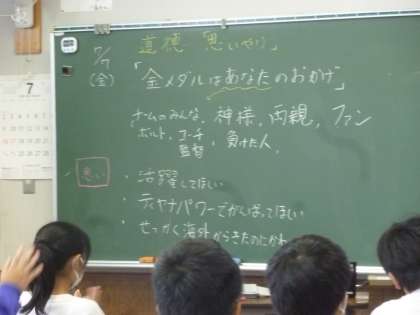 7
7/7 (金)
道徳 思いやり
「金メダルはあなたのおかげ」
チームのみんな、神様、両親、ファン
ボルト、コーチ 監督、負けた人、
思い
・活躍してほしい
・ティヤナパワーでがんばってほしい
・せっかく海外からきたのにかわ